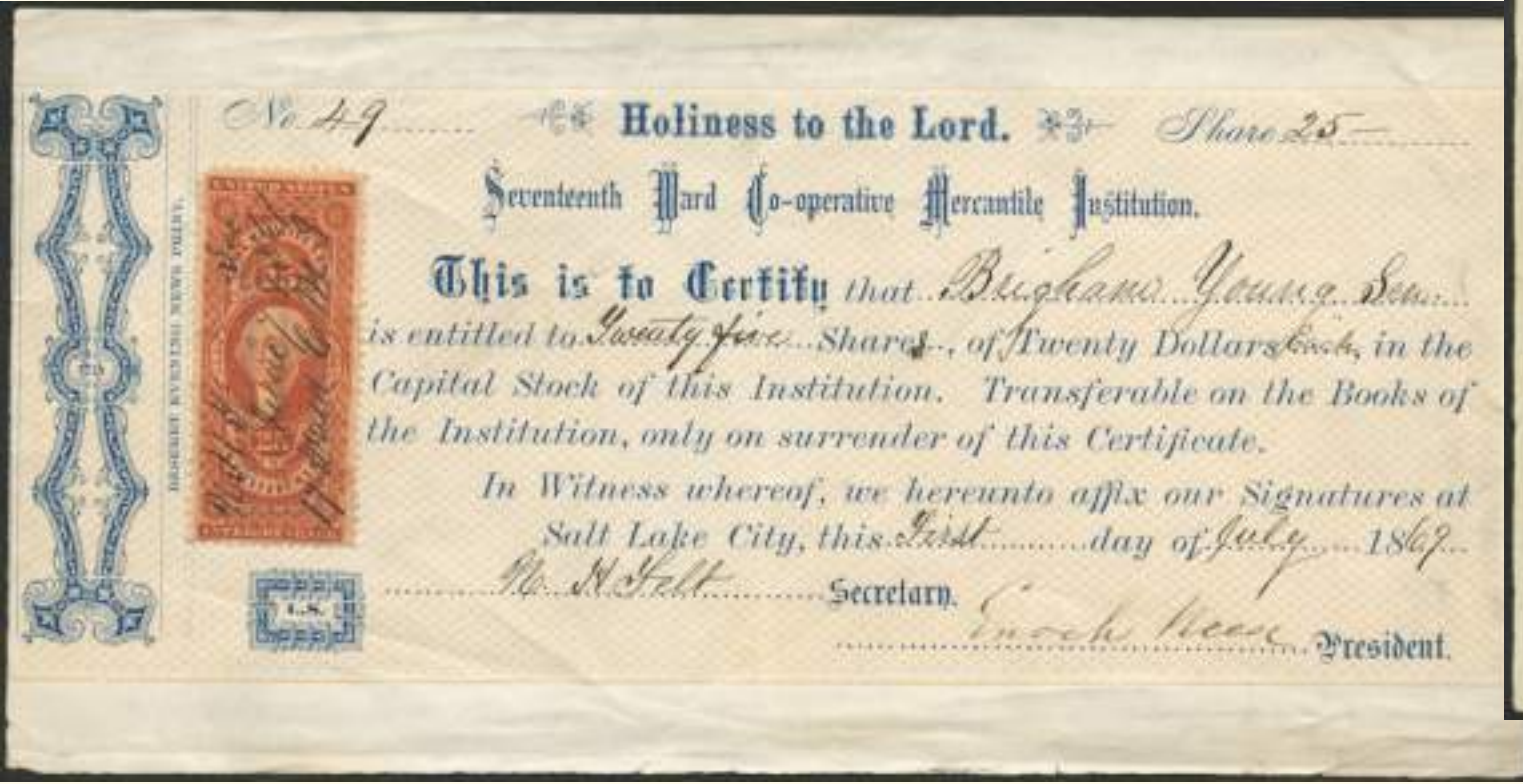 No. 49 Holiness to the Lord. Share 25—
Seventeenth Ward Co-operative Mercantile Institution.
This is to Certify that Brigham Young Sen.
is entitled to Twenty five Shares, of Twenty Dollars Each, in the
Capital Stock of this Institution. Transferable on the Books of
the Institution, only on surrender of this Certificate.
In Witness whereof, we hereunto affix our Signatures at
Salt Lake City, this First day of July 1869
N. H. Felt Secretary.
L.S.
Enoch Reese President.
DESERET EVENING NEWS PRINT.
UNITED STATES